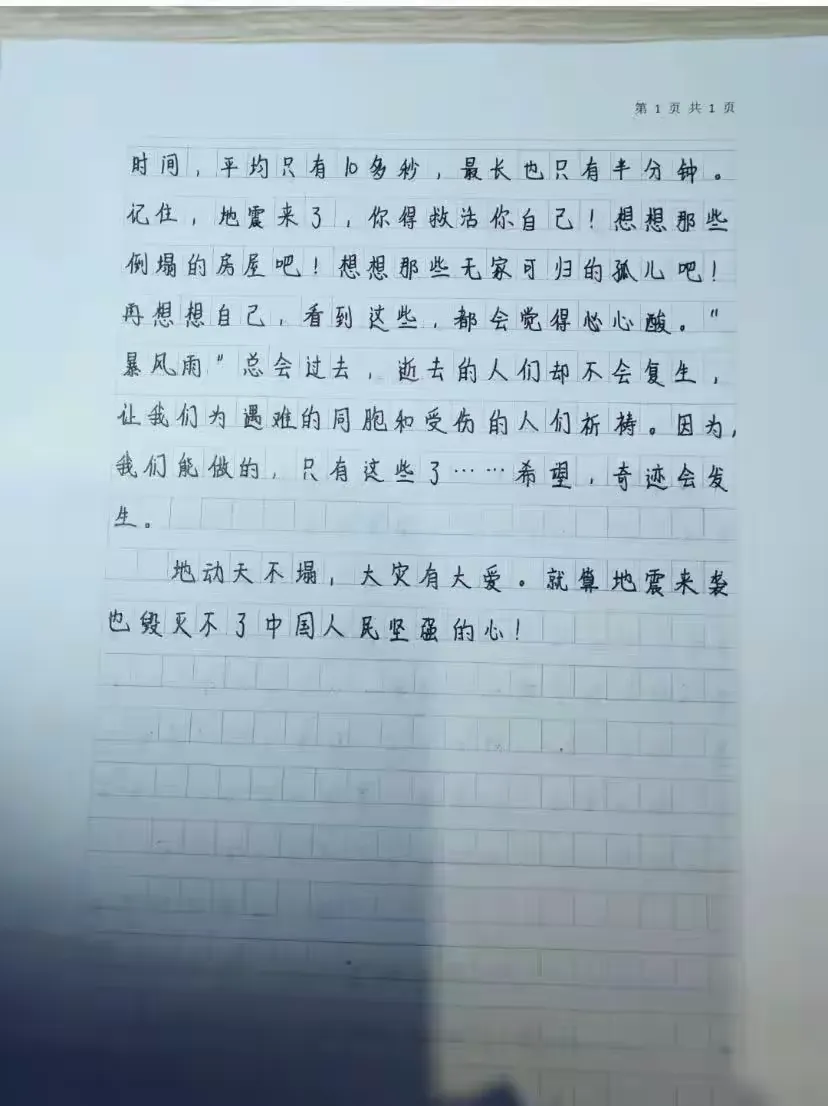 第 1 页 共 1 页
时间，平均只有10多秒，最长也只有半分钟。
记住，地震来了，你得救活你自己！想想那些
倒塌的房屋吧！想想那些无家可归的孤儿吧！
再想想自己，看到这些，都会觉得心心酸。"
暴风雨"总会过去，逝去的人们却不会复生，
让我们为遇难的同胞和受伤的人们祈祷。因为，
我们能做的，只有这些了……希望，奇迹会发
生。
地动天不塌，大灾有大爱。就算地震来袭
也毁灭不了中国人民坚强的心！